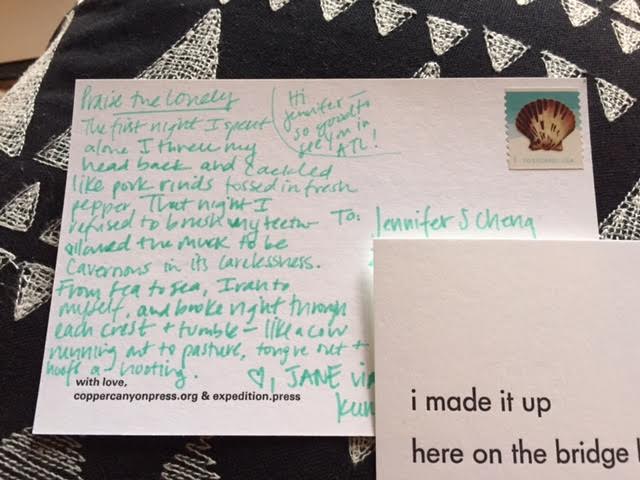 Praise the Lonely
Hi
Jennifer —
so good to
see you in
ATL!
The first night I spent
alone I threw my
head back and cackled
like pork rinds tossed in fresh
pepper. That night I
refused to brush my teeth
allowed the muck to be
cavernous in its carelessness.
From tea to sea, I ran to
myself, and broke right through
each crest + tumble – like a cow
running out to pasture, tongue out +
hoofs a-hooting.
♡, JANE via
To: Jennifer S Cheng
with love,
coppercanyonpress.org & expedition.press
i made it up
here on the bridge